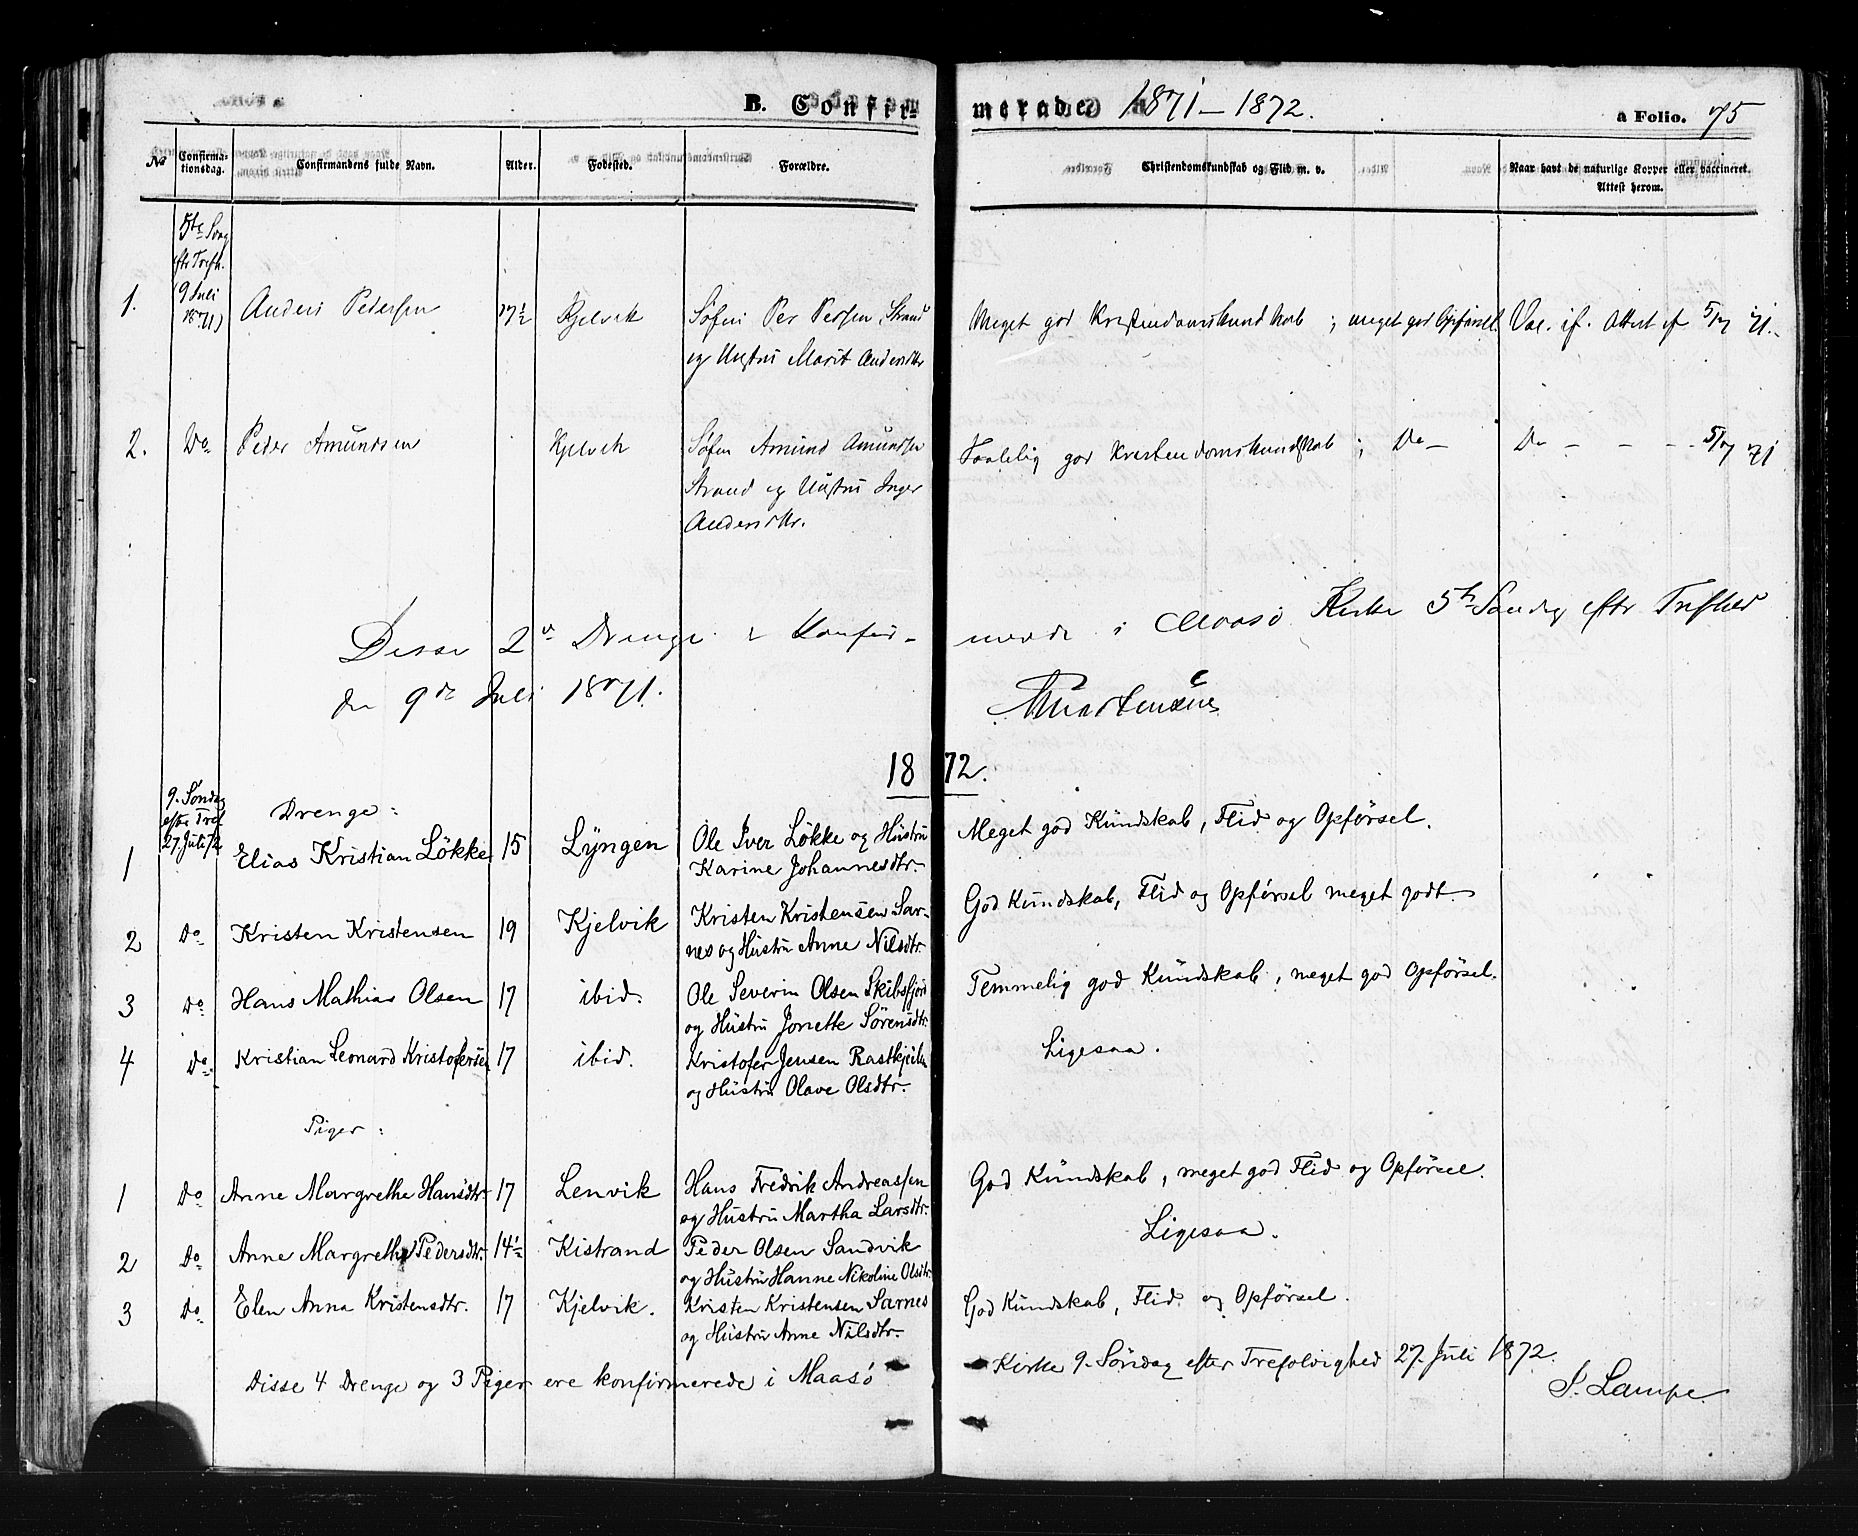 B. Confirmerade 1871 – 1872. a Folio. 75
No Confirmationsdag. Confirmandens fulde Navn. Alder. Fødested. Forældre. Christendomskundskab og Flid m. v. Naar havt de naturlige Kopper eller vaccineret. Attest herom.
5te Søng
eftr Trefh.
1. (9 Juli 1871) Anders Pedersen 17½ Kjelvik Søfin Per Persen, Strand Meget god Kristendomskundskab ; meget god Opførsel. Vac. if. Attest af 5/7 71.
og Hustru Marit Andersdtr
2. Do Peder Amundsen Kjelvik Søfin Amund Amundsen Taalelig god Kristendomskundskab ; Do – Do – – – 5/7 71
Strand og Hustru Inger
Andersdtr.
Disse 2de Drenge konfirmerede i Maasø Kirke 5te Søndag eftr Trefhed
den 9de Juli 1871. Martensen
1872.
9. Søndag
efter Tref
27. Juli 72
Drenge:
1 Elias Kristian Løkke 15 Lyngen Ole Iver Løkke og Hustru Meget god Kundskab, Flid og Opførsel.
Karine Johannesdtr.
2 Do Kristen Kristensen 19 Kjelvik Kristen Kristensen Sar- God Kundskab, Flid og Opførsel meget godt.
nes og Hustru Anne Nilsdtr.
3 Do Hans Mathias Olsen 17 ibid. Ole Severin Olsen Skibsfjord Temmelig god Kundskab, meget god Opførsel.
og Hustru Jonette Sørensdtr.
4 Do Kristian Leonard Kristofersen 17 ibid. Kristofer Jensen Ligesaa.
og Hustru Olave Olsdtr.
Piger:
1 Do Anne Margrethe Hansdtr. 17 Lenvik Hans Fredrik Andreassen God Kundskab, meget god Flid og Opførsel.
og Hustru Martha Larsdtr.
2 Do Anne Margrethe Pedersdtr. 14½ Kistrand Peder Olsen Sandvik Ligesaa.
og Hustru Hanne Nikoline Olsdtr.
3 Do Elen Anna Kristensdtr. 17 Kjelvik. Kristen Kristensen Sarnes God Kundskab, Flid og Opførsel.
og Hustru Anne Nilsdtr.
Disse 4 Drenge og 3 Piger ere konfirmerede i Maasø Kirke 9. Søndag efter Trefoldighed 27. Juli 1872.
S. Lampe